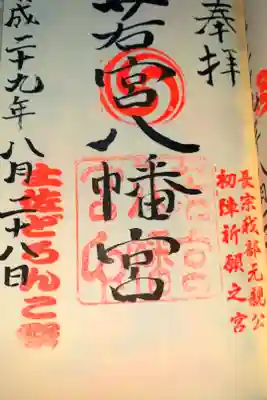 奉拝
長宗我部元親公
初陣祈願之宮
若宮八幡宮
土佐どろんこ祭
成二十九年八月二十八日